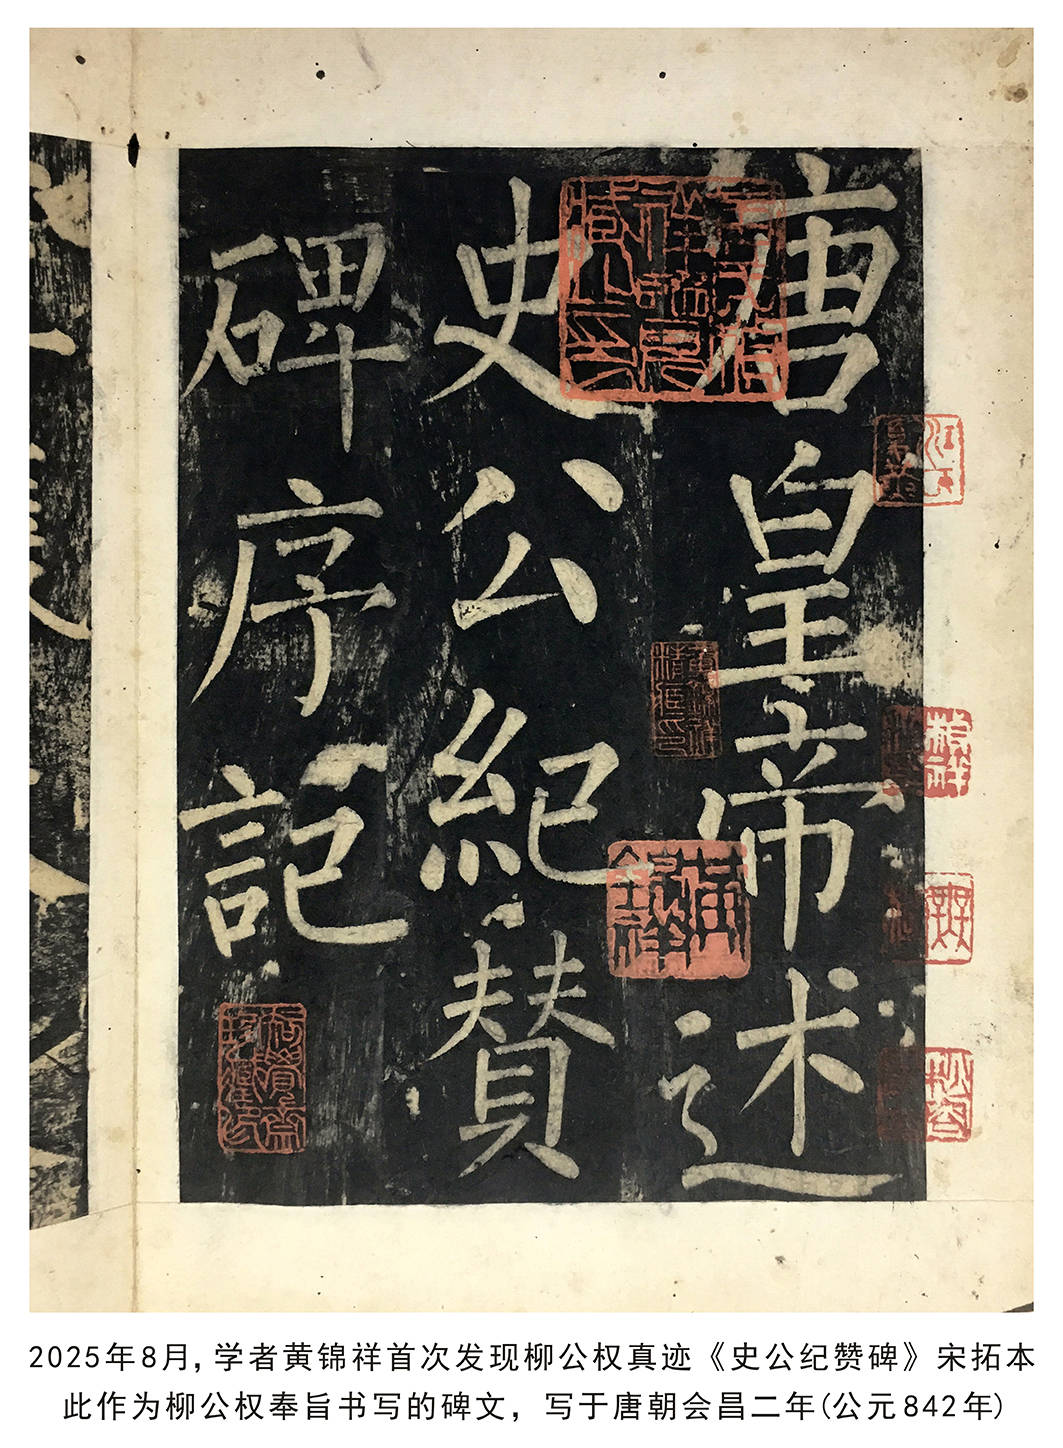 唐皇帝述
史公紀賛
碑序記
2025年8月，学者黄锦祥首次发现柳公权真迹《史公纪赞碑》宋拓本
此作为柳公权奉旨书写的碑文，写于唐朝会昌二年(公元842年)